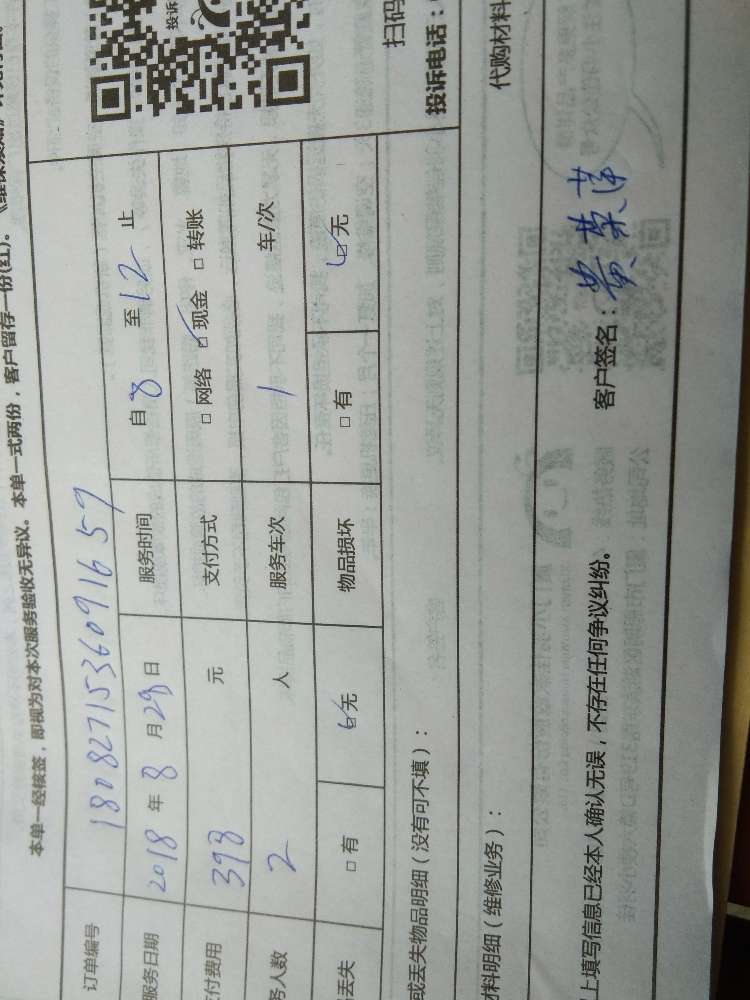 本单一经核签，即视为对本次服务验收无异议。本单一式两份，客户留存一份(红)。
投诉
扫码
投诉电话：
订单编号 180827153609 16 59
服务日期 2018 年 8 月 29 日 服务时间 自 8 至 12 止
付费用 398 元 支付方式 □ 网络 ☑ 现金 □ 转账
务人数 2 人 服务车次 1 车/次
丢失 □ 有 ☑ 无 物品损坏 □ 有 ☑ 无
或丢失物品明细（没有可不填）：
材料明细（维修业务）： 代购材料
上填写信息已经本人确认无误，不存在任何争议纠纷。 客户签名：黄荣萍